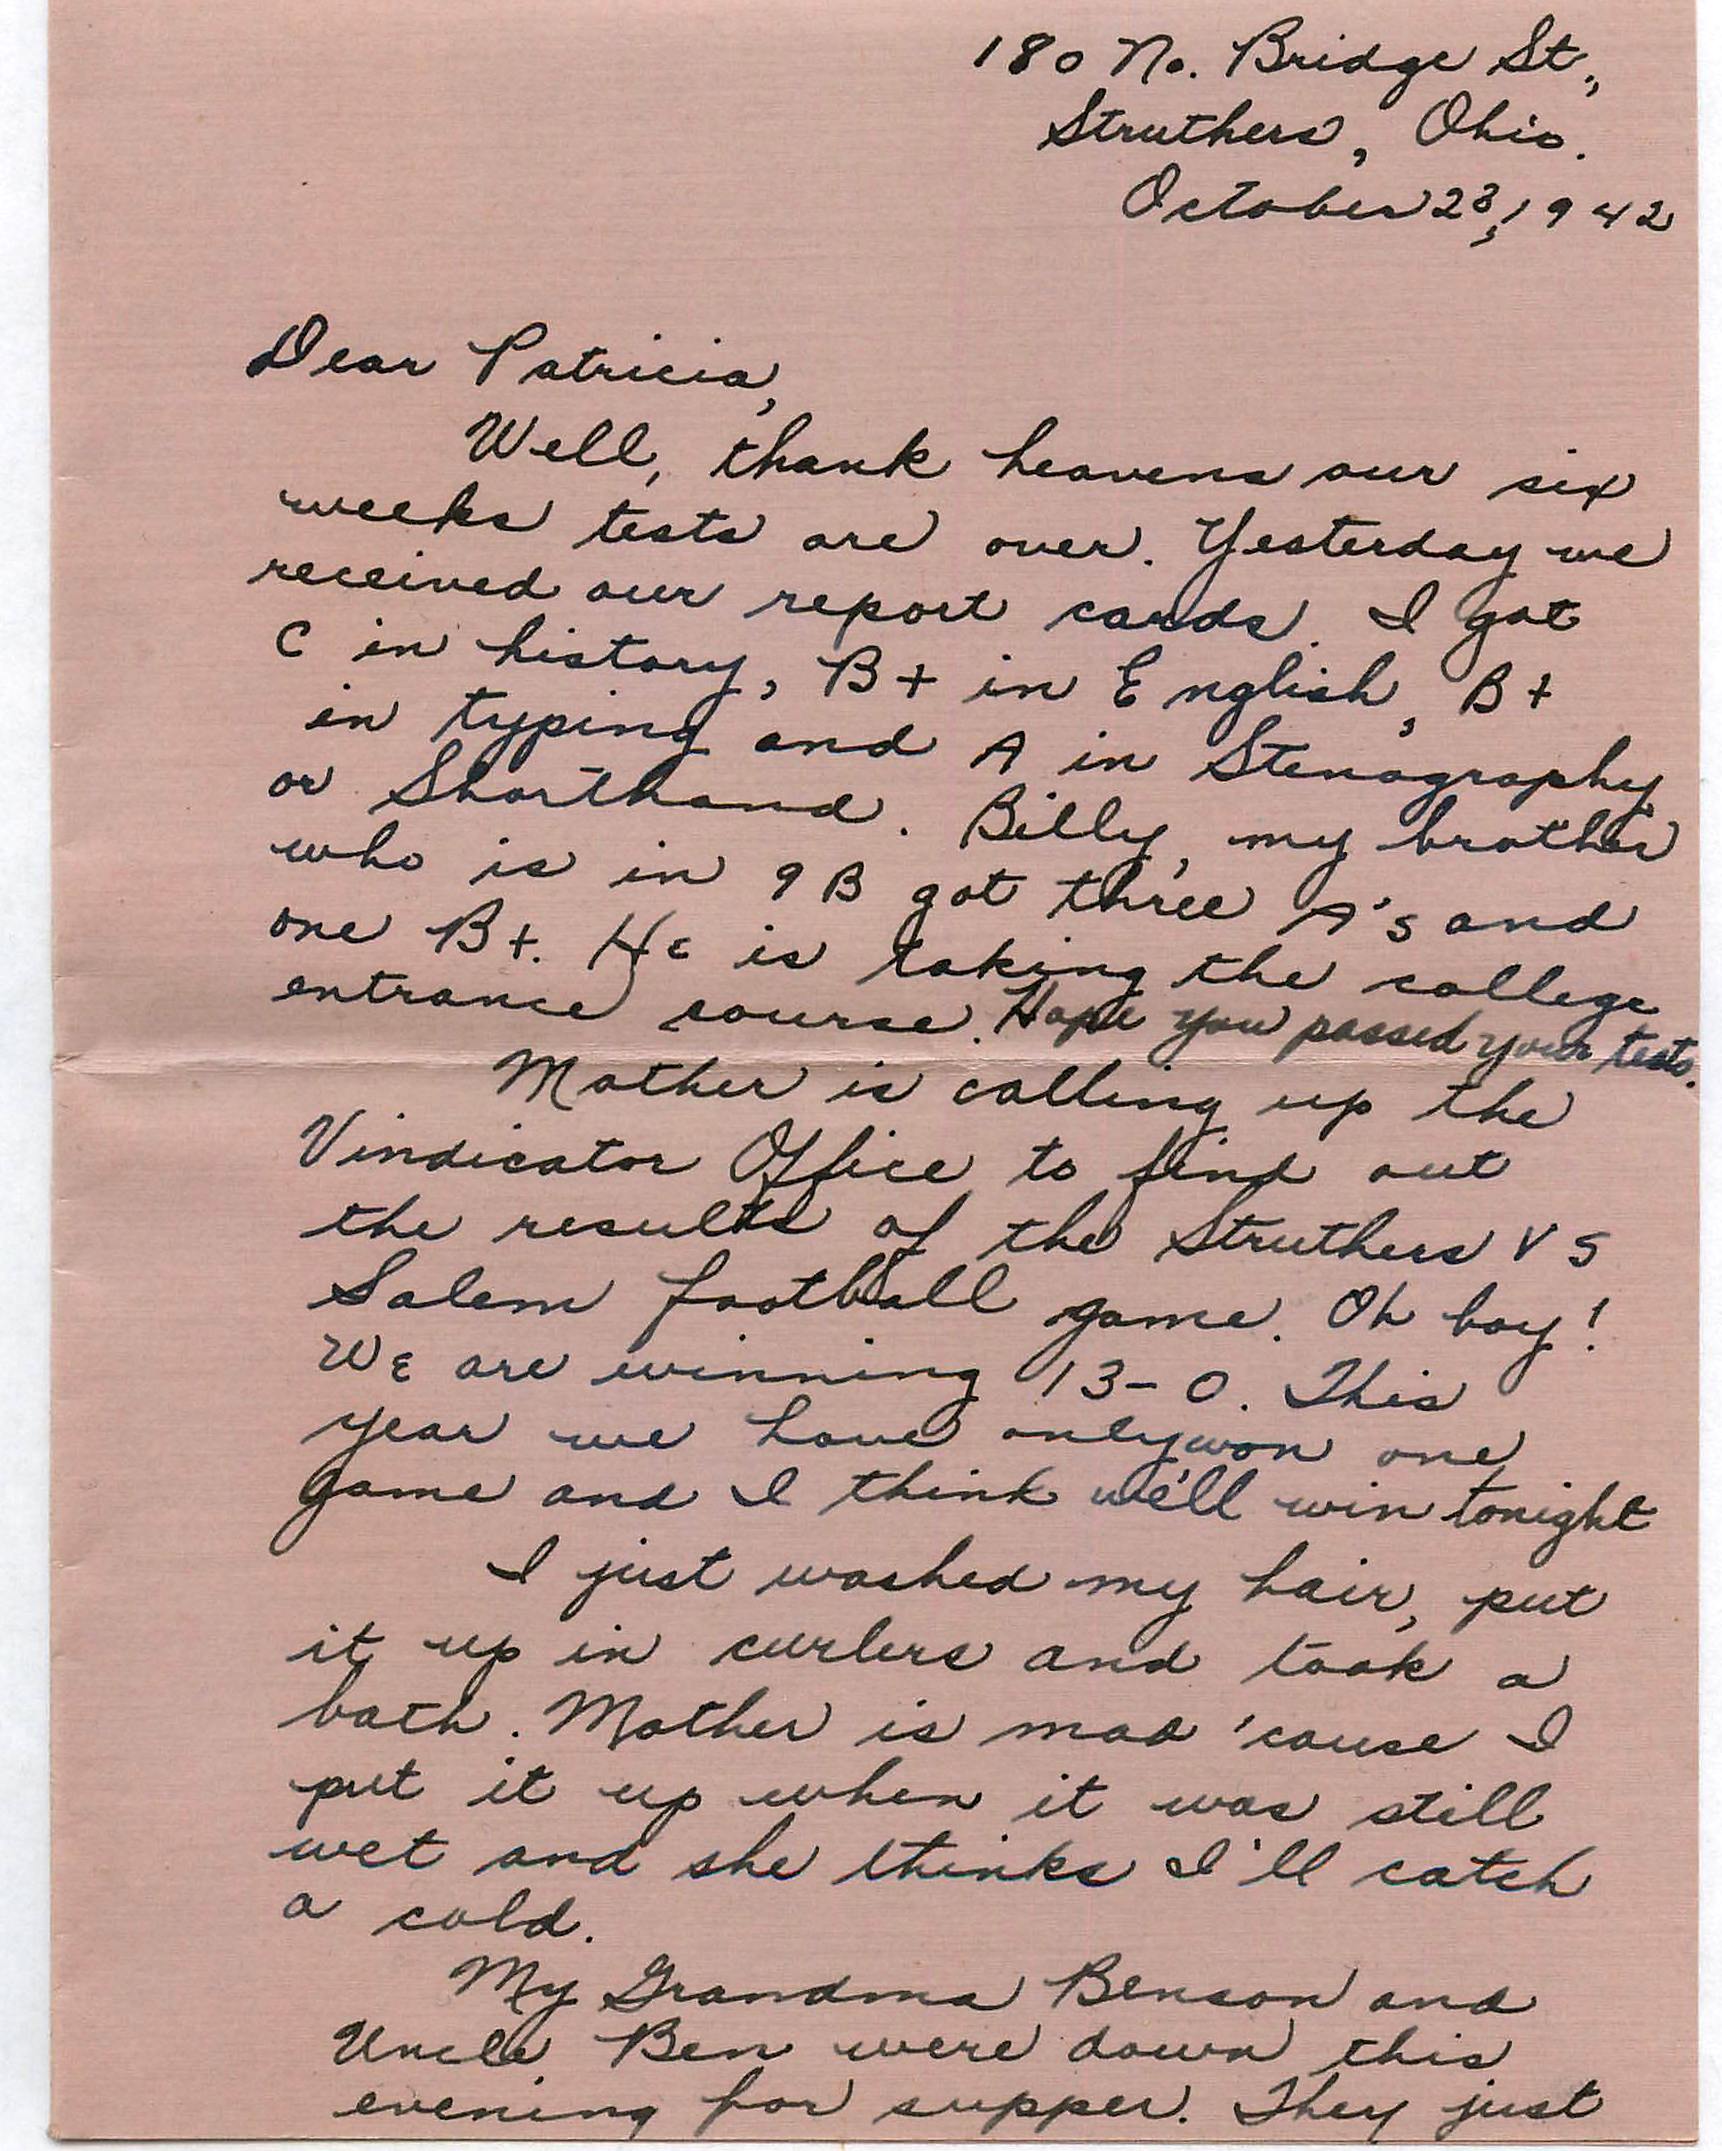 180 No. Bridge St.,
Struthers, Ohio.
October 23, 1942
Dear Patricia,
Well, thank heavens our six
weeks tests are over. Yesterday we
received our report cards. I got
C in history, B+ in English, B+
in typing and A in Stenography
or Shorthand. Billy, my brother
who is in 9B got three A's and
one B+. He is taking the college
entrance course. Hope you passed your tests.
Mother is calling up the
Vindicator Office to find out
the results of the Struthers vs
Salem football game. Oh boy!
We are winning 13-0. This
year we have only won one
game and I think we'll win tonight
I just washed my hair, put
it up in curlers and took a
bath. Mother is mad 'cause I
put it up when it was still
wet and she thinks I'll catch
a cold.
My Grandma Benson and
Uncle Ben were down this
evening for supper. They just